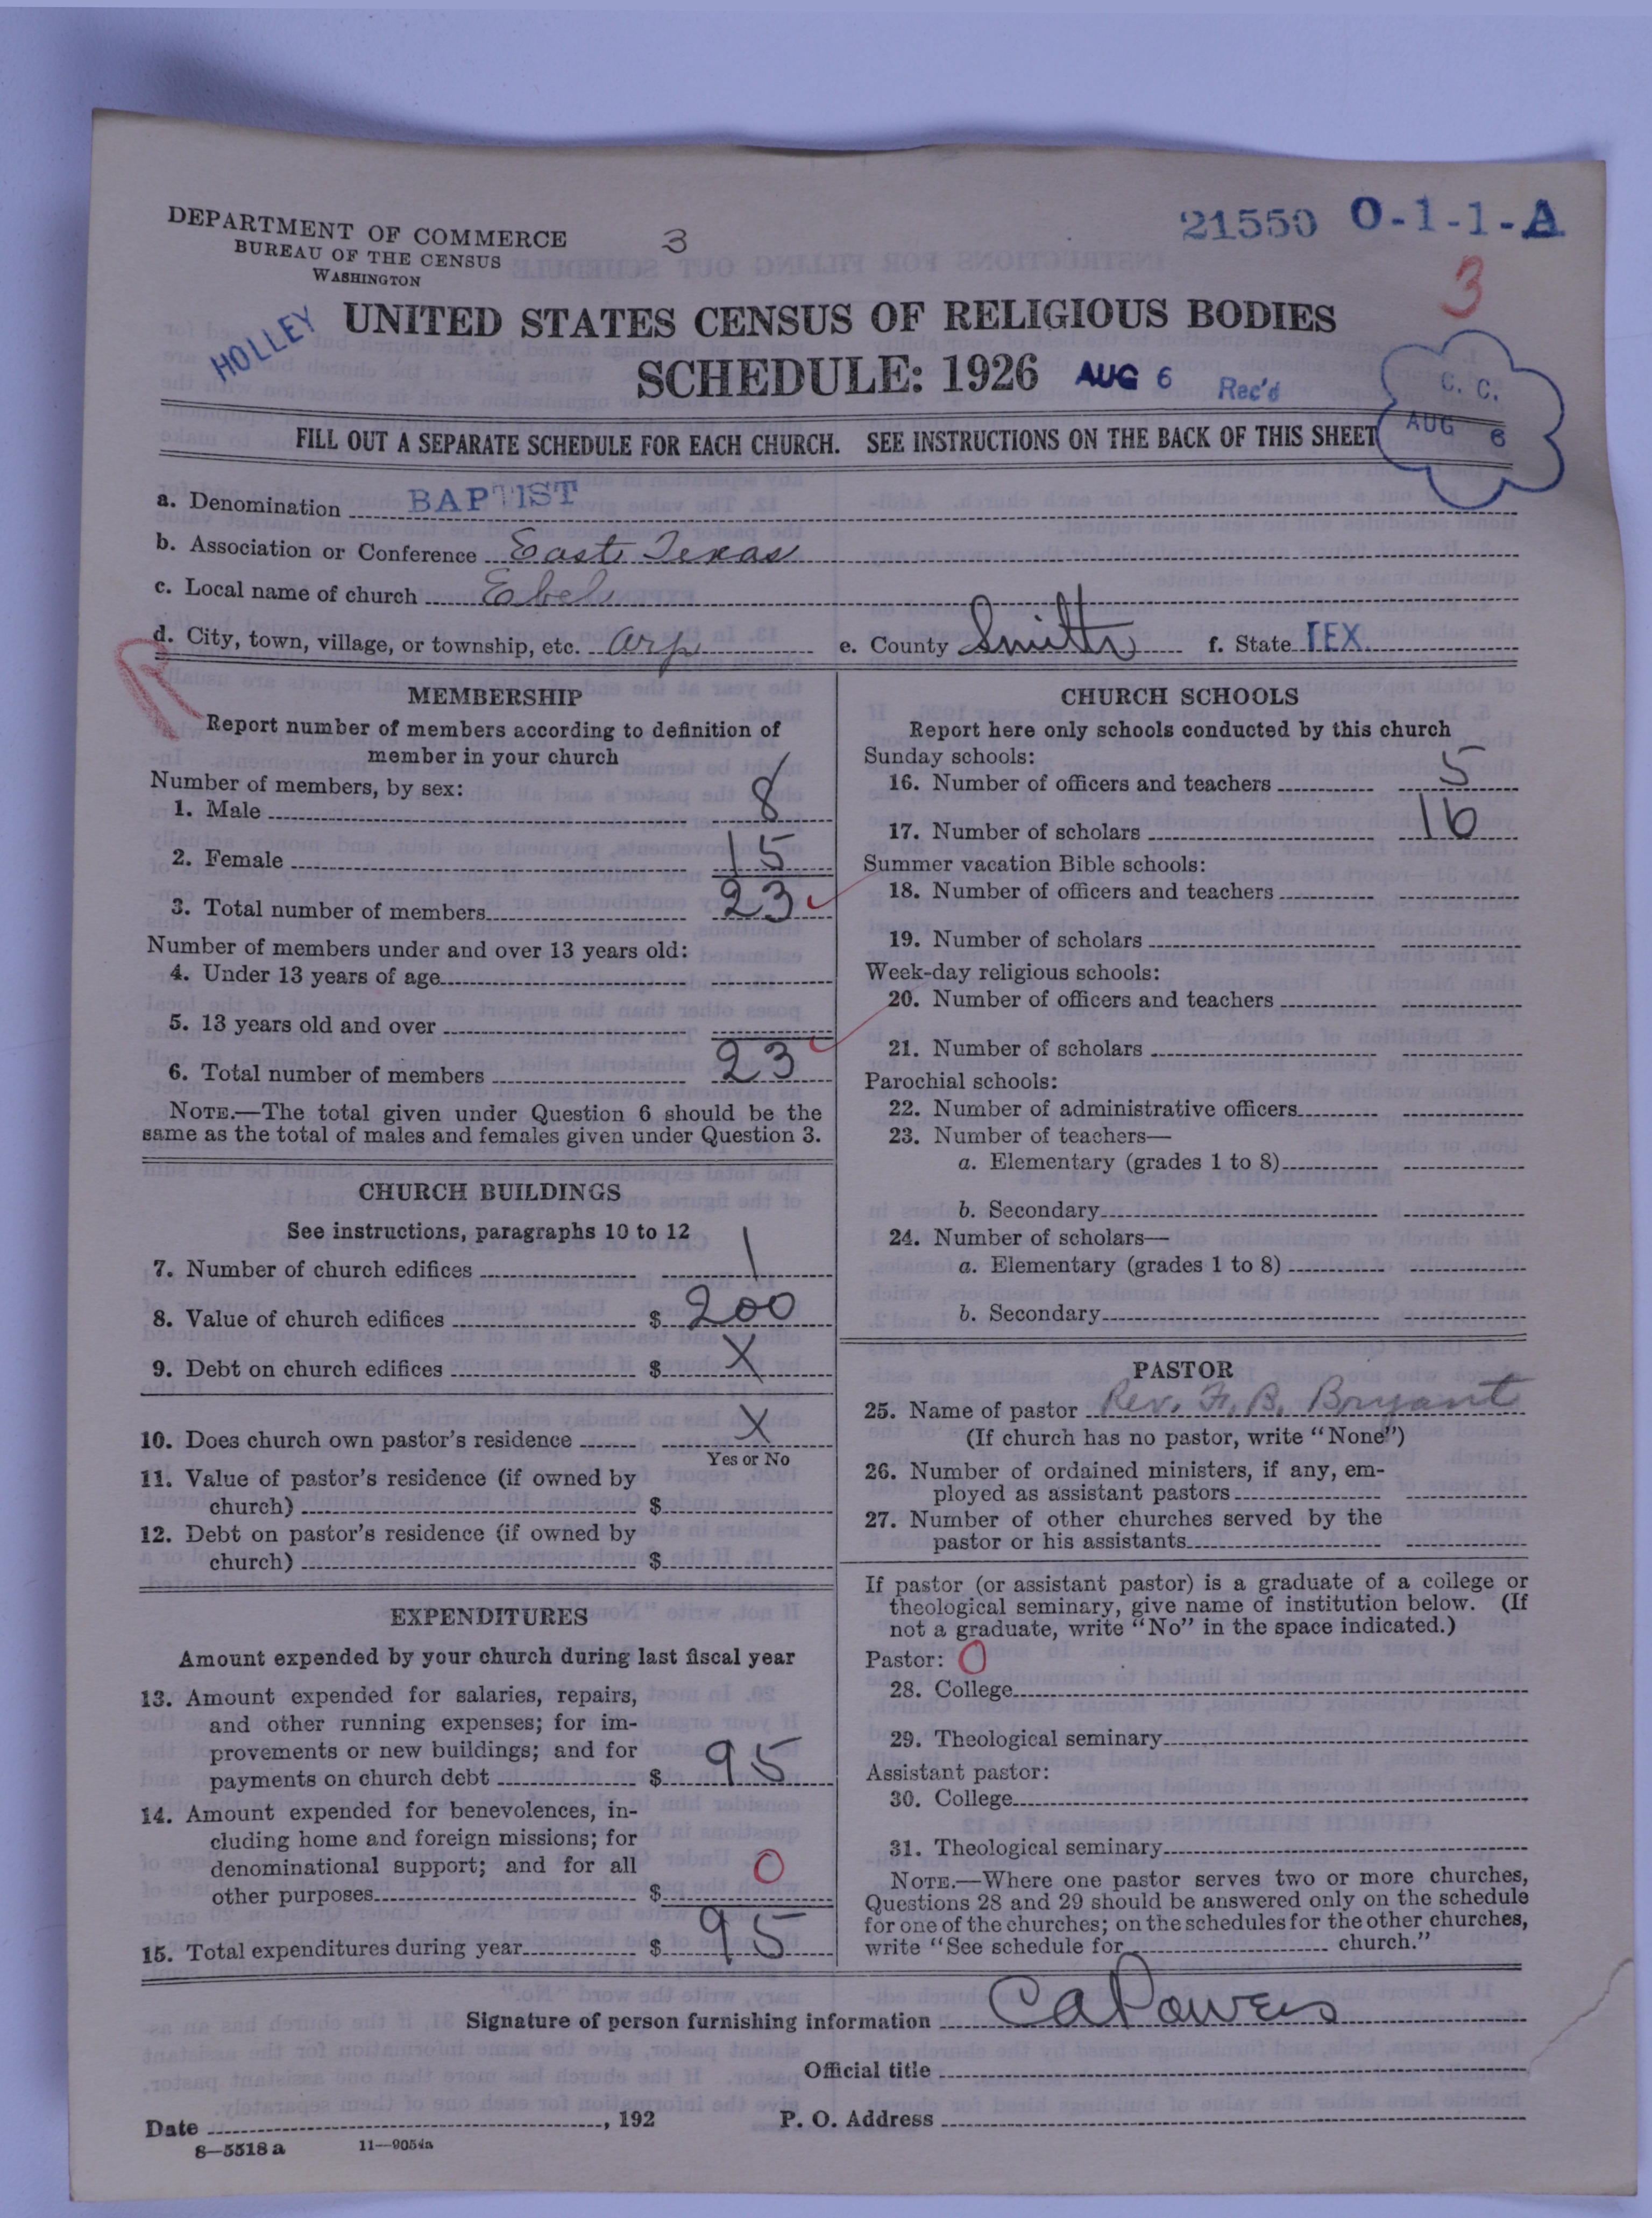 DEPARTMENT OF COMMERCE
BUREAU OF THE CENSUS
WASHINGTON
3
21550 O-1-1-A
3
HOLLEY
UNITED STATES CENSUS OF RELIGIOUS BODIES
SCHEDULE: 1926 AUG 6 Rec'd
C. C.
AUG 6
FILL OUT A SEPARATE SCHEDULE FOR EACH CHURCH. SEE INSTRUCTIONS ON THE BACK OF THIS SHEET
a. Denomination BAPTIST
b. Association or Conference East Texas
c. Local name of church Ebel
d. City, town, village, or township, etc. Arp e. County Smith f. State TEX.
R
MEMBERSHIP
Report number of members according to definition of
member in your church
Number of members, by sex:
1. Male 8
2. Female 15
3. Total number of members 23
Number of members under and over 13 years old:
4. Under 13 years of age
5. 13 years old and over
6. Total number of members 23
NOTE.—The total given under Question 6 should be the
same as the total of males and females given under Question 3.
CHURCH BUILDINGS
See instructions, paragraphs 10 to 12
7. Number of church edifices 1
8. Value of church edifices $ 200
9. Debt on church edifices $ X
10. Does church own pastor's residence X
Yes or No
11. Value of pastor's residence (if owned by
church) $
12. Debt on pastor's residence (if owned by
church) $
EXPENDITURES
Amount expended by your church during last fiscal year
13. Amount expended for salaries, repairs,
and other running expenses; for im-
provements or new buildings; and for
payments on church debt $ 95
14. Amount expended for benevolences, in-
cluding home and foreign missions; for
denominational support; and for all
other purposes $ 0
15. Total expenditures during year $ 95
CHURCH SCHOOLS
Report here only schools conducted by this church
Sunday schools:
16. Number of officers and teachers 5
17. Number of scholars 16
Summer vacation Bible schools:
18. Number of officers and teachers
19. Number of scholars
Week-day religious schools:
20. Number of officers and teachers
21. Number of scholars
Parochial schools:
22. Number of administrative officers
23. Number of teachers—
a. Elementary (grades 1 to 8)
b. Secondary
24. Number of scholars—
a. Elementary (grades 1 to 8)
b. Secondary
PASTOR
25. Name of pastor Rev. F. B. Bryant
(If church has no pastor, write "None")
26. Number of ordained ministers, if any, em-
ployed as assistant pastors
27. Number of other churches served by the
pastor or his assistants
If pastor (or assistant pastor) is a graduate of a college or
theological seminary, give name of institution below. (If
not a graduate, write "No" in the space indicated.)
Pastor: 0
28. College
29. Theological seminary
Assistant pastor:
30. College
31. Theological seminary
NOTE.—Where one pastor serves two or more churches,
Questions 28 and 29 should be answered only on the schedule
for one of the churches; on the schedules for the other churches,
write "See schedule for church."
Signature of person furnishing information CA Powers
Official title
Date , 192 P. O. Address
8—5518 a 11—9054a